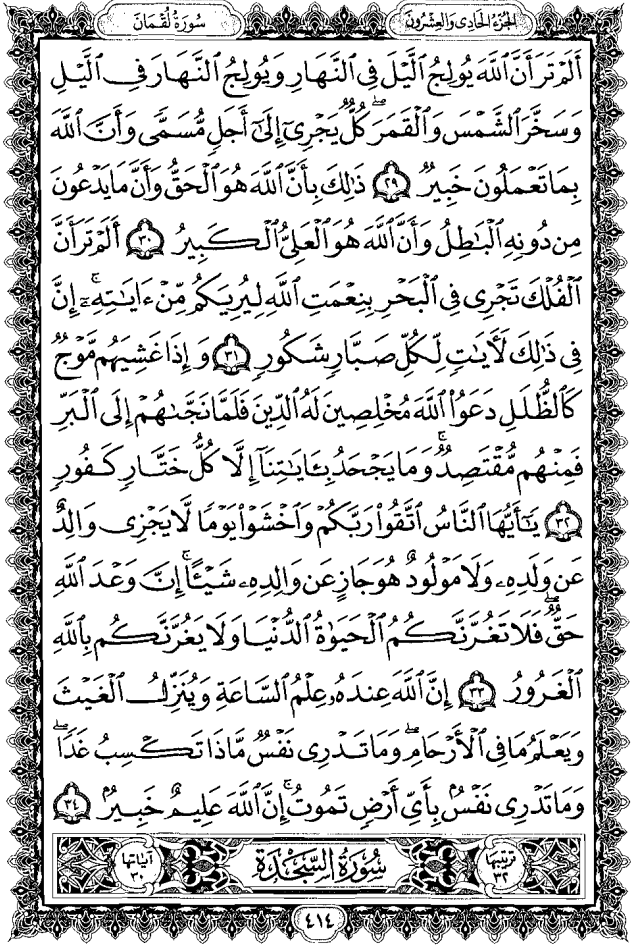 الجزء الحادي والعشرون
سورة لقمان
أَلَمْ تَرَ أَنَّ ٱللَّهَ يُولِجُ ٱلَّيْلَ فِى ٱلنَّهَارِ وَيُولِجُ ٱلنَّهَارَ فِى ٱلَّيْلِ
وَسَخَّرَ ٱلشَّمْسَ وَٱلْقَمَرَۖ كُلٌّ يَجْرِىٓ إِلَىٰٓ أَجَلٍ مُّسَمًّى وَأَنَّ ٱللَّهَ
بِمَا تَعْمَلُونَ خَبِيرٌ ٢٩ ذَٰلِكَ بِأَنَّ ٱللَّهَ هُوَ ٱلْحَقُّ وَأَنَّ مَا يَدْعُونَ
مِن دُونِهِ ٱلْبَٰطِلُ وَأَنَّ ٱللَّهَ هُوَ ٱلْعَلِىُّ ٱلْكَبِيرُ ٣٠ أَلَمْ تَرَ أَنَّ
ٱلْفُلْكَ تَجْرِى فِى ٱلْبَحْرِ بِنِعْمَتِ ٱللَّهِ لِيُرِيَكُم مِّنْ ءَايَٰتِهِۦٓۚ إِنَّ
فِى ذَٰلِكَ لَءَايَٰتٍ لِّكُلِّ صَبَّارٍ شَكُورٍ ٣١ وَإِذَا غَشِيَهُم مَّوْجٌ
كَٱلظُّلَلِ دَعَوُا۟ ٱللَّهَ مُخْلِصِينَ لَهُ ٱلدِّينَ فَلَمَّا نَجَّىٰهُمْ إِلَى ٱلْبَرِّ
فَمِنْهُم مُّقْتَصِدٌۚ وَمَا يَجْحَدُ بِـَٔايَٰتِنَآ إِلَّا كُلُّ خَتَّارٍ كَفُورٍ
٣٢ يَٰٓأَيُّهَا ٱلنَّاسُ ٱتَّقُوا۟ رَبَّكُمْ وَٱخْشَوْا۟ يَوْمًا لَّا يَجْزِى وَالِدٌ
عَن وَلَدِهِۦ وَلَا مَوْلُودٌ هُوَ جَازٍ عَن وَالِدِهِۦ شَيْـًٔاۚ إِنَّ وَعْدَ ٱللَّهِ
حَقٌّۖ فَلَا تَغُرَّنَّكُمُ ٱلْحَيَوٰةُ ٱلدُّنْيَا وَلَا يَغُرَّنَّكُم بِٱللَّهِ
ٱلْغَرُورُ ٣٣ إِنَّ ٱللَّهَ عِندَهُۥ عِلْمُ ٱلسَّاعَةِ وَيُنَزِّلُ ٱلْغَيْثَ
وَيَعْلَمُ مَا فِى ٱلْأَرْحَامِۖ وَمَا تَدْرِى نَفْسٌ مَّاذَا تَكْسِبُ غَدًاۖ
وَمَا تَدْرِى نَفْسٌۢ بِأَىِّ أَرْضٍ تَمُوتُۚ إِنَّ ٱللَّهَ عَلِيمٌ خَبِيرٌۢ ٣٤
ترتيبها ٣٢ سُورَةُ السَّجْدَةِ آياتها ٣٠
٤١٤